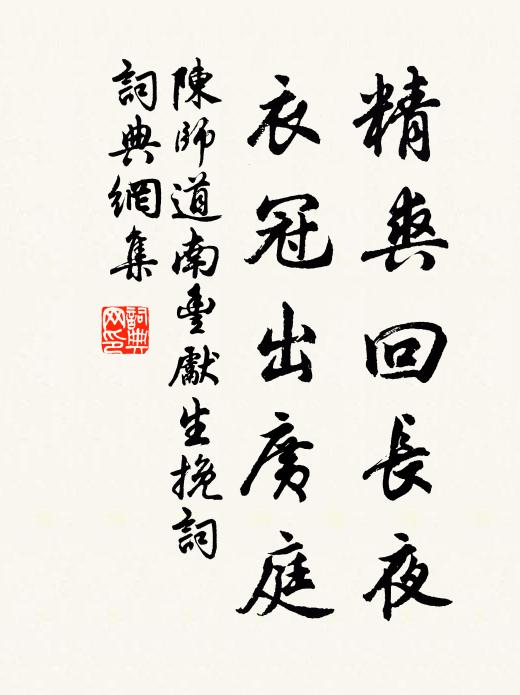 精爽回長夜
衣冠出廣庭
陳師道南豐獻生挽詞
詞典網集
詞典网印